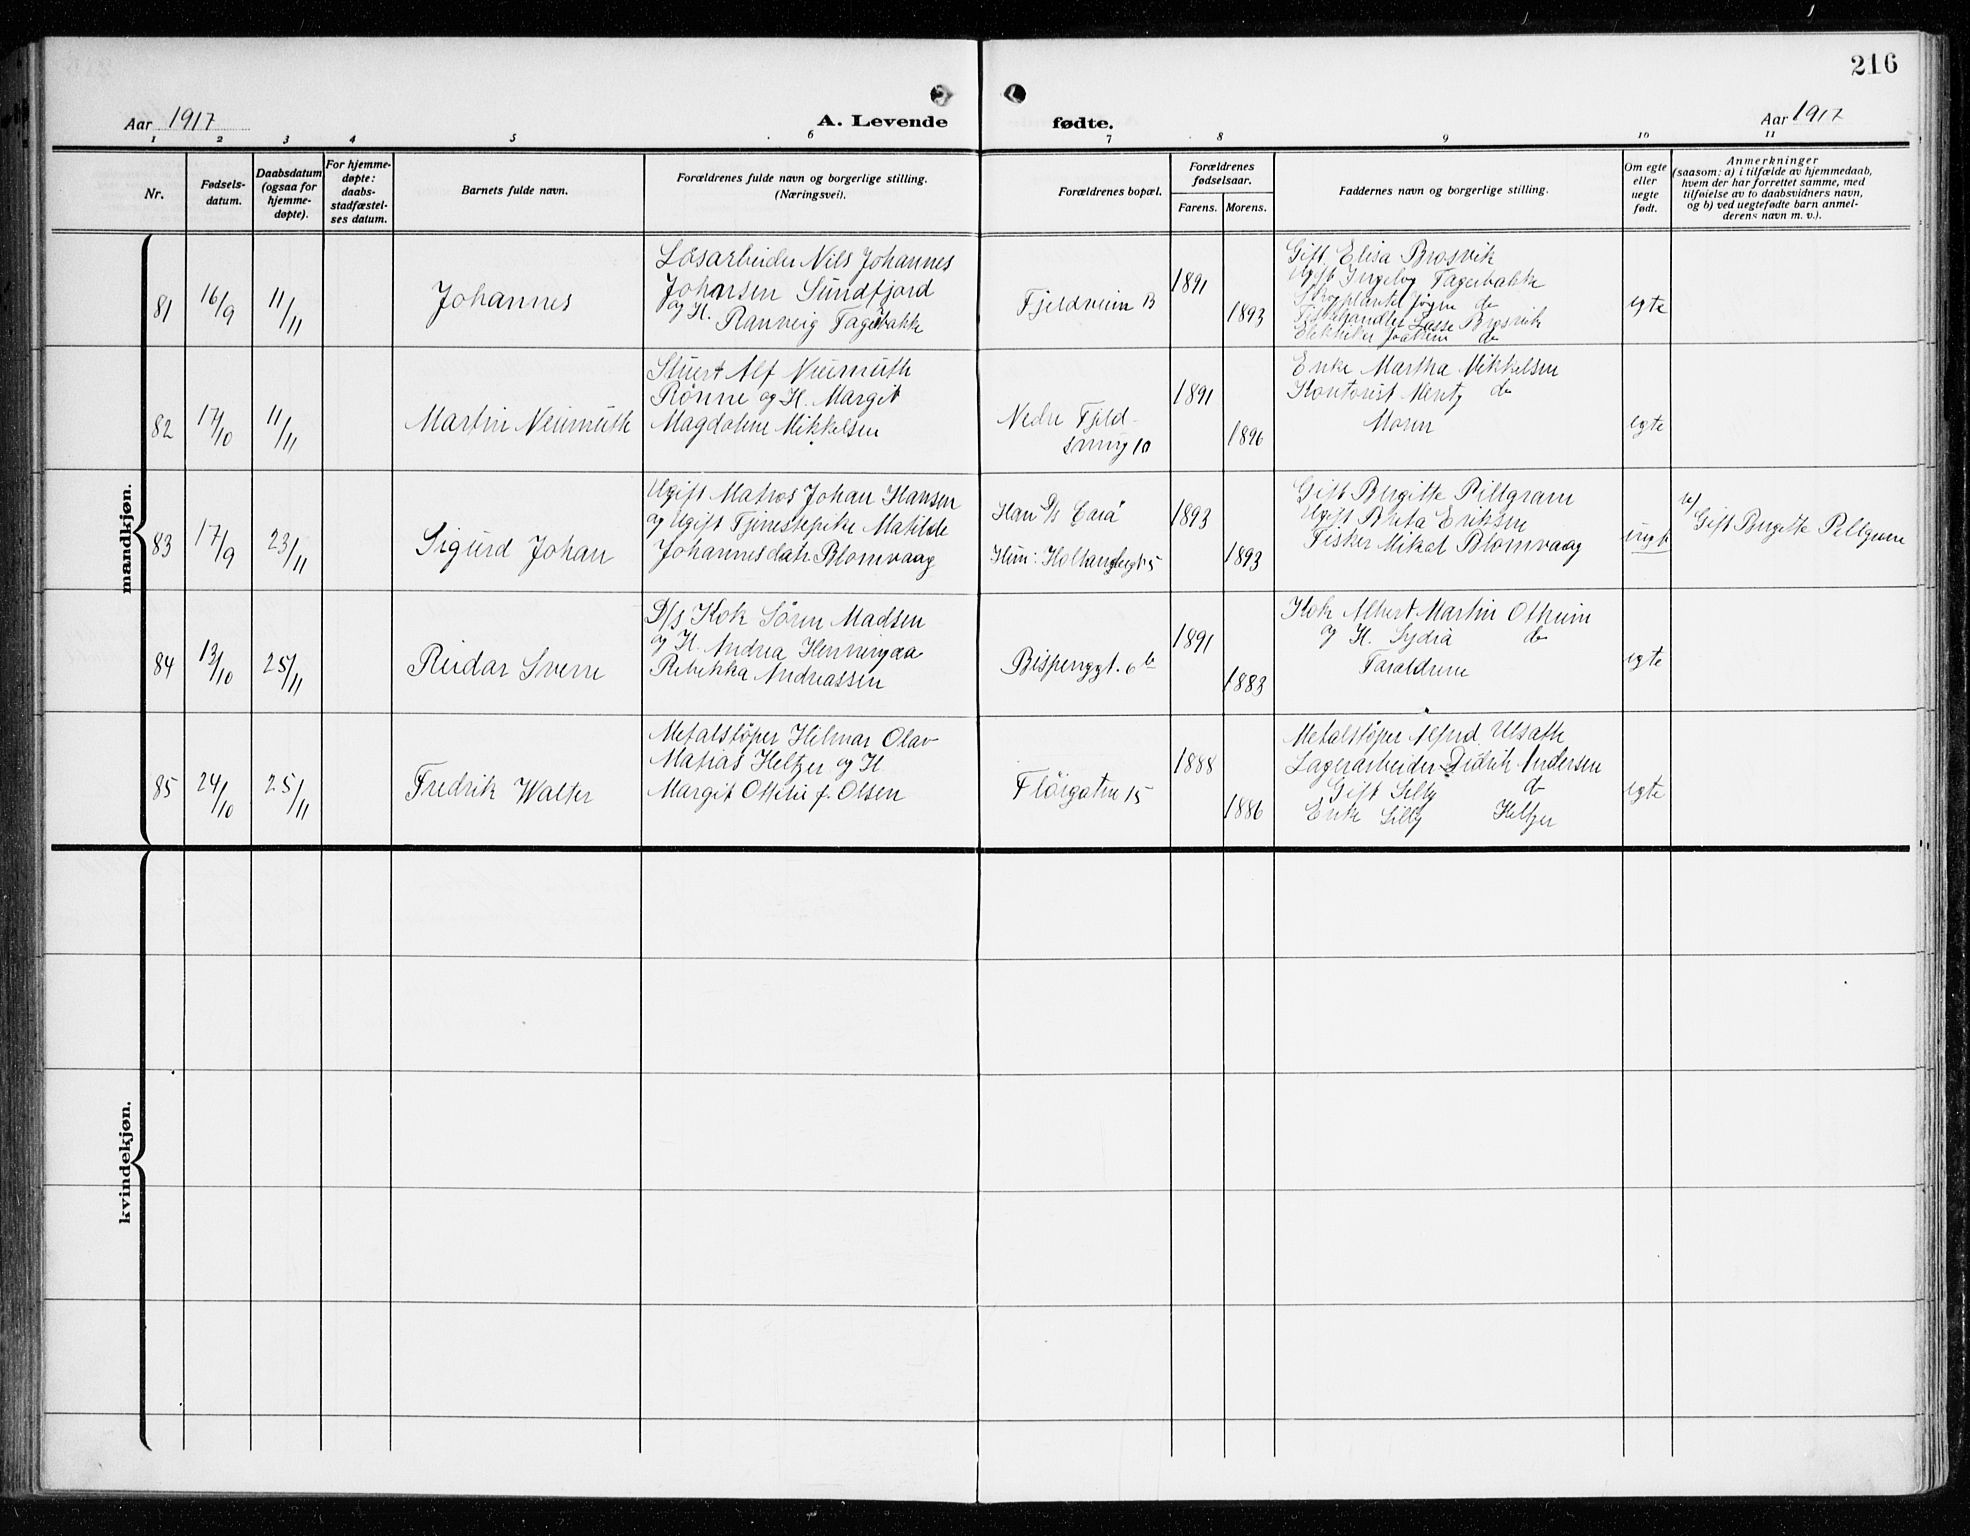 216
Aar 1917
A. Levende fødte.
Aar 1917
1 2 3 4 5 6 7 8 9 10 11
Nr.
Fødsels-
datum.
Daabsdatum
(ogsaa for
hjemme-
døpte).
For hjemme-
døpte:
daabs-
stadfæstel-
ses datum.
Barnets fulde navn.
Forældrenes fulde navn og borgerlige stilling.
(Næringsvei).
Forældrenes bopæl.
Forældrenes
fødselsaar.
Farens. Morens.
Faddernes navn og borgerlige stilling.
Om egte
eller
uegte
født.
Anmerkninger
(saasom: a) i tilfælde av hjemmedaab,
hvem der har forrettet samme, med
tilføielse av to daabsvidners navn,
og b) ved uegtefødte barn anmel-
derens navn m. v.).
mandkjøn.
81
16/9
11/11
Johannes
Løsarbeider Nils Johannes
Johansen Sundfjord
og H. Ranveig Fagerbakke
Fjeldveien
1891
1893
Gift Elisa Brosvik
Ugift Ingeborg Fagerbakke
do
Fiskehandler Lasse Brosvik
Elektriker Joakim do
egte
82
17/10
11/11
Martin Neumuth
Stuert Alf Neumuth
Rønne og H. Margit
Magdalene Mikkelsen
Nedre Fjeld-
smug 10
1891
1896
Enke Martha Mikkelsen
Kontorist Mentz do
Moren
egte
83
17/9
23/11
Sigurd Johan
Ugift Matros Johan Hansen
og Ugift Tjenestepike Matilde
Johannesdatr Blomvaag
Han D/S
Hun:
1893
1893
Gift Birgitte Pillgram
Ugift Brita Eriksen
Fisker Mikal Blomvaag
Gift Birgitte Pellgram
84
13/10
25/11
Reidar Sverre
D/s Kok Søren Madsen
og H. Andrea
Rebekka Andreassen
Bispenggt. 6b
1891
1883
Kok Albert Martin Ottheim
og H. do
Forældrene
egte
85
24/10
25/11
Fredrik Walter
Metalstøper Helmar Olav
Matias Heltzer og H.
Margit Ottilie f. Olsen
Fløigaten 15
1888
1886
Metalstøper Alfred Ulsath
Lagerarbeider Didrik Andersen
Gift Silly do
Enke Silly Heltzer
egte
kvindekjøn.